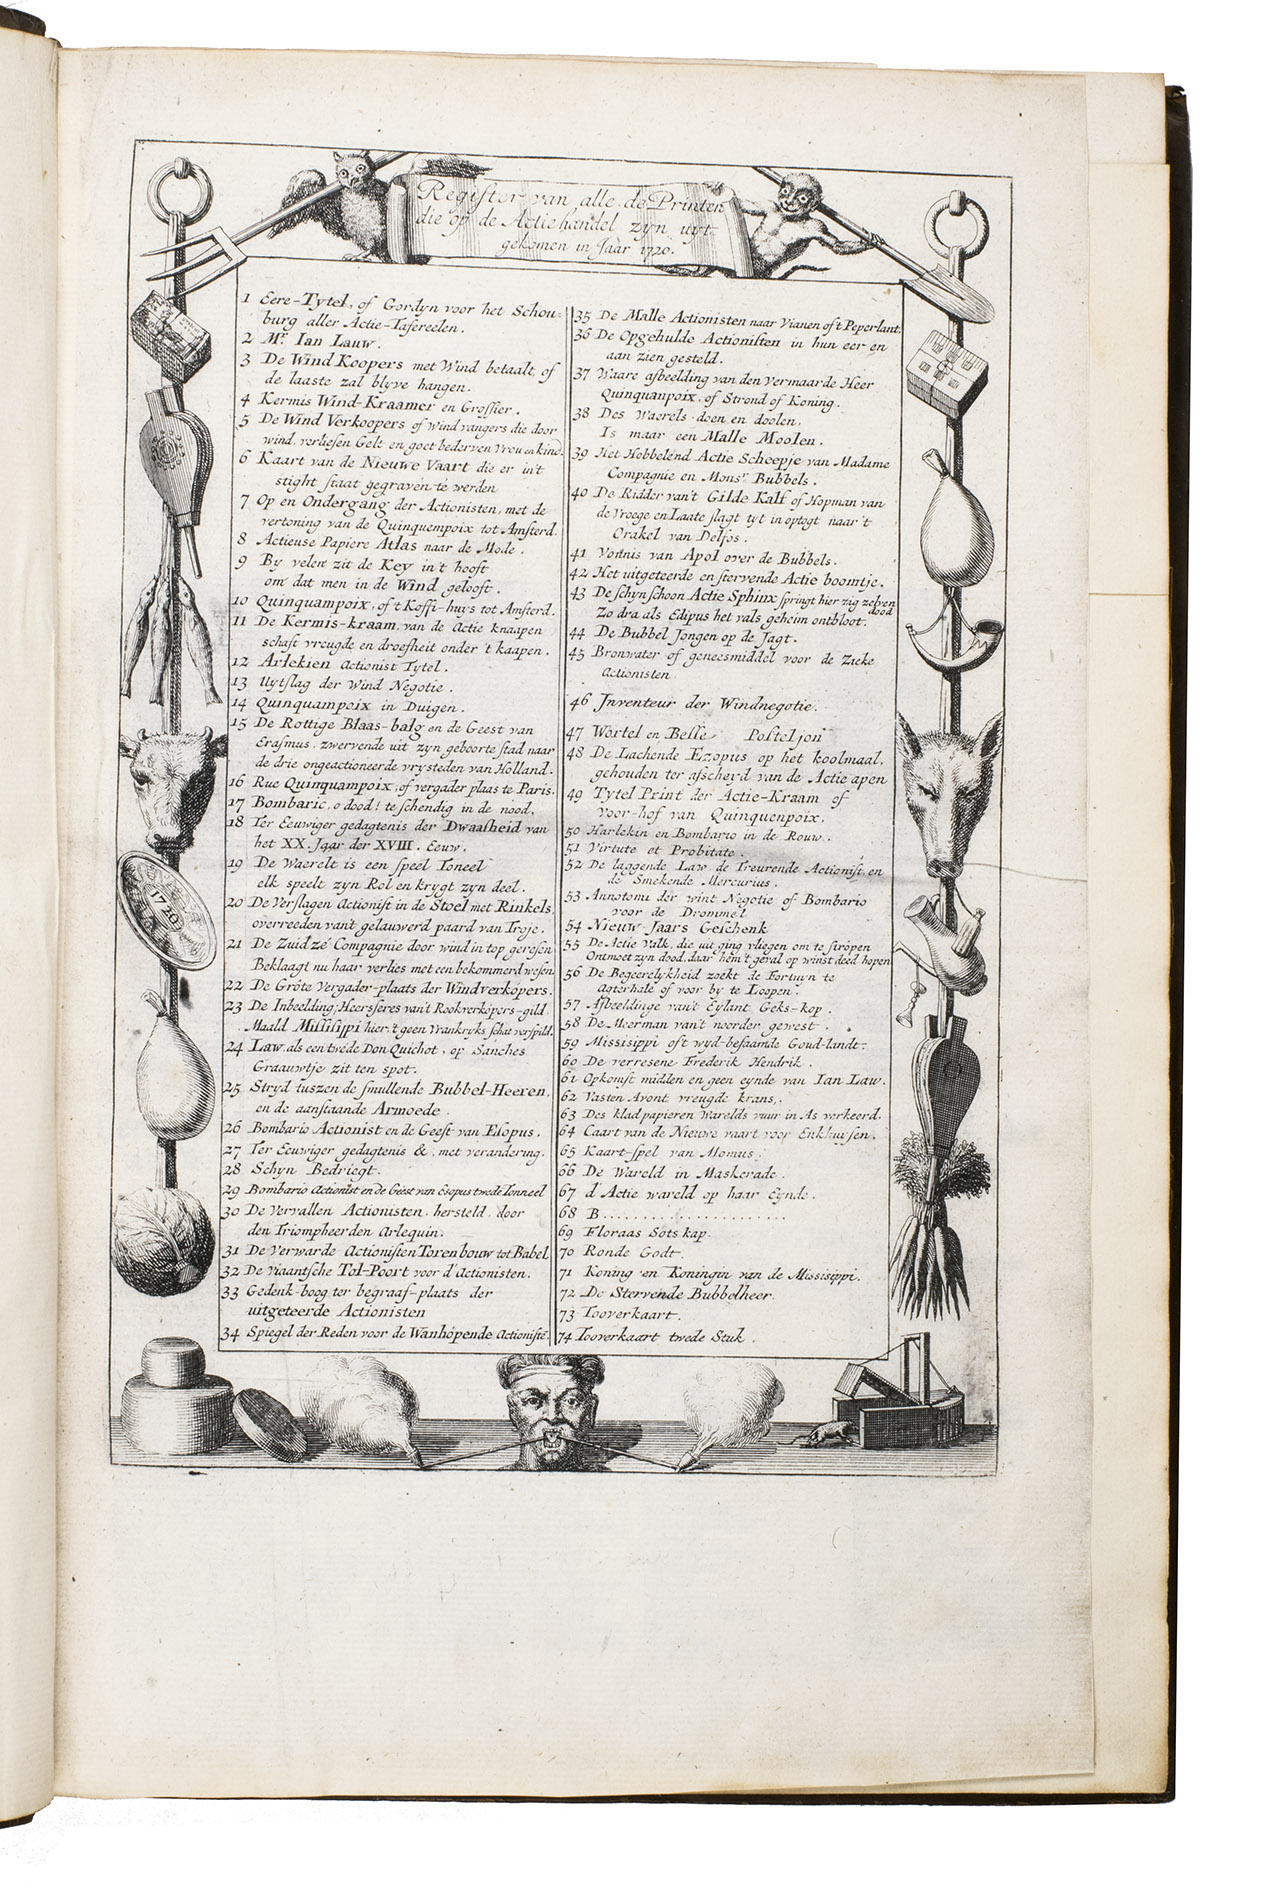 Register van alle de Printen
die op de Actiehandel zyn uyt-
gekomen in Jaar 1720.
1 Eere-Tytel, of Gordyn voor het Schou-
burg aller Actie-Tafereelen.
2 Mr. Ian Lauw.
3 De Wind Koopers met Wind betaalt, of
de laaste zal blyve hangen.
4 Kermis Wind-Kraamer en Grossier.
5 De Wind Verkoopers of Windvangers die door
wind, verliesen Gelt en goet bederven Vrou en kind.
6 Kaart van de Nieuwe Vaart die er in't
stight staat gegraven te werden
7 Op en Ondergang der Actionisten, met de
vertoning van de Quinquempoix tot Amsterd.
8 Actieuse Papiere Atlas naar de Mode.
9 By velen zit de Key in't hooft
om dat men in de Wind gelooft.
10 Quinquampoix, of 't Koffi-huys tot Amsterd.
11 De Kermis-kraam, van de Actie knaapen
schaft vreugde en droefheit onder 't kaapen.
12 Arlekien Actionist Tytel.
13 Uytslag der Wind Negotie.
14 Quinquampoix in Duigen.
15 De Rottige Blaas-balg en de Geest van
Erasmus, zwervende uit zyn geboorte stad naar
de drie ongeactioneerde vrysteden van Holland.
16 Rue Quinquampoix, of vergader plaas te Paris.
17 Bombaric, o dood! te schendig in de nood.
18 Ter Eeuwiger gedagtenis der Dwaasheid van
het XX. Jaar der XVIII. Eeuw.
19 De Waerelt is een speel Toneel
elk speelt zyn Rol en krygt zyn deel.
20 De Verslagen Actionist in de Stoel met Rinkels
overreeden van't gelauwerd paard van Troje.
21 De Zuid zé Compagnie door wind in top geresen
Beklaagt nu haar verlies met een bekommerd wesen
22 De Gróte Vergader-plaats der Windverkópers.
23 De Inbeelding, Heersseres van't Rookverkópers-gild,
Maald Missisippi hier, 't geen Vrankryks schat verspild.
24 Law, als een twede Don Quichot, op Sanches
Graauwtje zit ten spot.
25 Stryd tuszen de smullende Bubbel-Heeren,
en de aanstaande Armoede.
26 Bombario Actionist en de Geest van Esopus.
27 Ter Eeuwiger gedagtenis &, met verandering.
28 Schyn Bedriegt.
29 Bombario Actionist en de Geest van Esopus twede Tonneel
30 De Vervallen Actionisten, hersteld, door
den Triompheerden Arlequin.
31 De Verwarde Actionisten Torenbouw tot Babel
32 De Viaantsche Tol-Poort voor d'Actionisten.
33 Gedenk-boog ter begraaf-plaats der
uitgeteerde Actionisten
34 Spiegel der Reden voor de Wanhópende Actionistē.
35 De Malle Actionisten naar Vianen oft Peperlant.
36 De Opgehulde Actionisten in hun eer en
aan zien gesteld.
37 Waare afbeelding van den vermaarde Heer
Quinquanpoix, of Strond of Koning.
38 Des Waerels doen en doolen,
Is maar een Malle Moolen.
39 Het Hobbelend Actie Scheepje van Madame
Compagnie en Monsr Bubbels.
40 De Ridder van't Gilde Kalf of Hopman van
de Vroege en Laate slagt tyt in optogt naar 't
Orakel van Delfos.
41 Vonnis van Apol over de Bubbels.
42 Het uitgeteerde en stervende Actie boomtje.
43 De schyn schoon Actie Sphinx springt hier zig zelven
dood
Zo dra als Edipus het vals geheim ontbloot.
44 De Bubbel Jongen op de Jagt.
45 Bronwater of geneesmiddel voor de Zieke
Actionisten
46 Jnventeur der Windnegotie.
47 Wortel en Besse Posteljon
48 De Lachende Ezopus op het koolmaal,
gehouden ter afscheyd van de Actie apen
49 Tytel Print der Actie-Kraam of
Voor-hof van Quinquenpoix.
50 Harlekin en Bombario in de Rouw.
51 Virtute et Probitate.
52 De laggende Law de Treurende Actionist, en
de Smekende Mercurius.
53 Annotomi der wint Negotie of Bombario
voor de Drommel
54 Nieuw Jaars Geschenk
55 De Actie Valk, die uit ging vliegen om te stropen
Ontmoet zyn dood, daar hem 't geval op winst deed hopen
56 De Begeerelykheid zoekt de Fortuyn te
agterhale of voor by te Loopen.
57 Afbeeldinge van't Eylant Geks-kop.
58 De Meerman van't noorder gewest.
59 Missisippi oft wyd-befaamde Goud-landt.
60 De verresene Frederik Hendrik.
61 Opkomst midden en geen eynde van Ian Law.
62 Vasten Avont vreugde krans,
63 Des kladpapieren Warelds vuur in As verkeerd.
64 Caart van de Nieuwe vaart voor Enkhuysen.
65 Kaart-spel van Momus
66 De Wareld in Maskerade.
67 d'Actie wareld op haar Eynde.
68 B......................
69 Floraas Sots kap.
70 Ronde Godt.
71 Koning en Koningin van de Missisippi.
72 De Stervende Bubbelheer.
73 Tooverkaart.
74 Tooverkaart twede Stuk.
1720